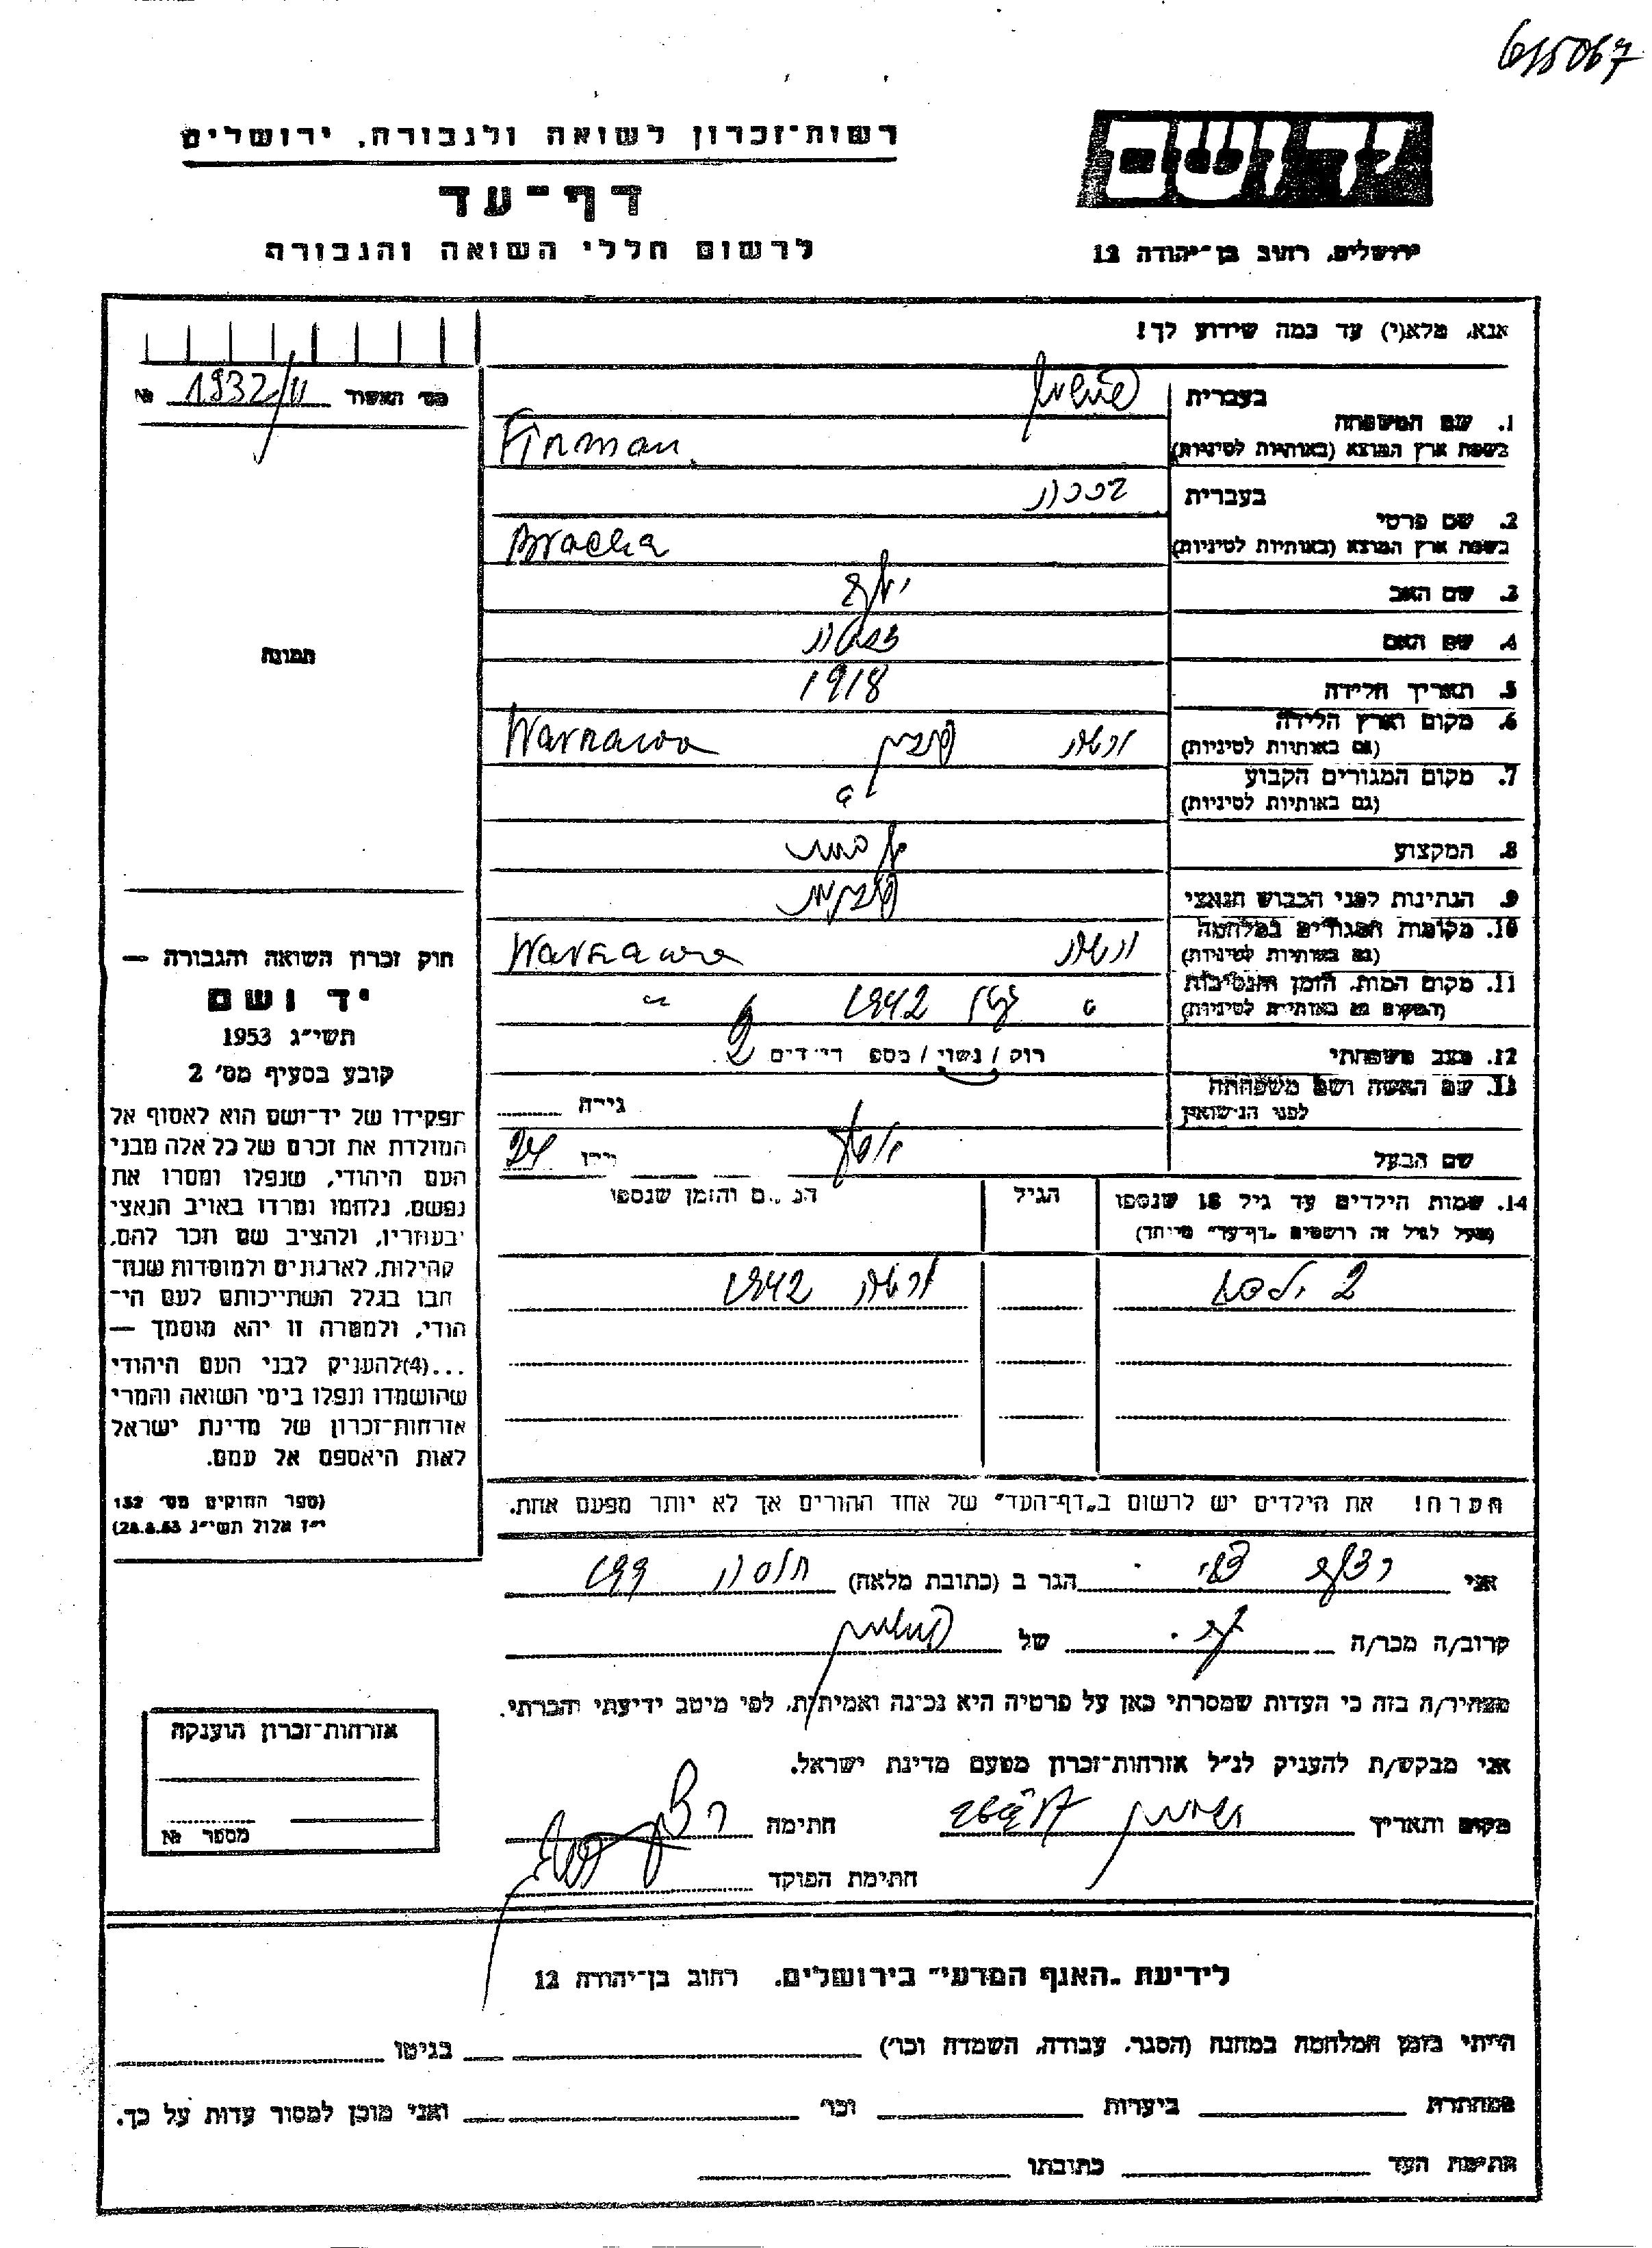 615067
יד ושם
רשות־זכרון לשואה ולגבורה, ירושלים
דף־עד
לרשום חללי השואה והגבורה
ירושלים, רחוב בן־יהודה 12
אנא, מלא(י) עד כמה שידוע לך!
מס' האשור 1932/וו №
1. שם המשפחה
בעברית
בשפת ארץ המוצא (באותיות לטיניות) Firman
2. שם פרטי
בעברית ברכה
בשפת ארץ המוצא (באותיות לטיניות) Bracha
3. שם האב
4. שם האם
5. תאריך הלידה 1918
6. מקום וארץ הלידה
(גם באותיות לטיניות) ורשה פולין Warszawa
7. מקום המגורים הקבוע
(גם באותיות לטיניות)
8. המקצוע
9. הנתינות לפני הכבוש הנאצי פולנית
10. מקומות המגורים במלחמה
(גם באותיות לטיניות) ורשה Warszawa
11. מקום המות, הזמן והנסיבות
(המקום גם באותיות לטיניות) " 1942 "
12. מצב משפחתי רוק / נשוי / מספר ילדים 2
13. שם האשה ושם משפחתה
לפני הנישואין
גילה
שם הבעל יוסף גילו 24
14. שמות הילדים עד גיל 18 שנספו
(מעל לגיל זה רושמים „דף־עד" מיוחד)
הגיל
המקום והזמן שנספו
2 ילדים ורשה 1942
הערה! את הילדים יש לרשום ב„דף־העד" של אחד ההורים אך לא יותר מפעם אחת.
תמונה
חוק זכרון השואה והגבורה —
יד ושם
תשי״ג 1953
קובע בסעיף מס' 2
תפקידו של יד־ושם הוא לאסוף אל
המולדת את זכרם של כל אלה מבני
העם היהודי, שנפלו ומסרו את
נפשם, נלחמו ומרדו באויב הנאצי
ובעוזריו, ולהציב שם וזכר להם,
לקהילות, לארגונים ולמוסדות שנח־
רבו בגלל השתייכותם לעם היה־
הודי, ולמטרה זו יהא מוסמך —
...(4)להעניק לבני העם היהודי
שהושמדו ונפלו בימי השואה והמרי
אזרחות־זכרון של מדינת ישראל
לאות היאספם אל עמם.
(ספר החוקים מס' 132
י״ז אלול תשי״ג 28.8.53)
אני הגר ב (כתובת מלאה)
קרוב/ה מכר/ה של פירמן
מצהיר/ה בזה כי העדות שמסרתי כאן על פרטיה היא נכונה ואמיתית, לפי מיטב ידיעתי והכרתי.
אני מבקש/ת להעניק לנ״ל אזרחות־זכרון מטעם מדינת ישראל.
מקום ותאריך חתימה
חתימת הפוקד
אזרחות־זכרון הוענקה
מספר №
לידיעת „האגף המדעי" בירושלים, רחוב בן־יהודה 12
הייתי בזמן המלחמה במחנה (הסגר, עבודה, השמדה וכו') בגיטו
במחתרת ביערות וכו' ואני מוכן למסור עדות על כך.
חתימת העד כתובתו